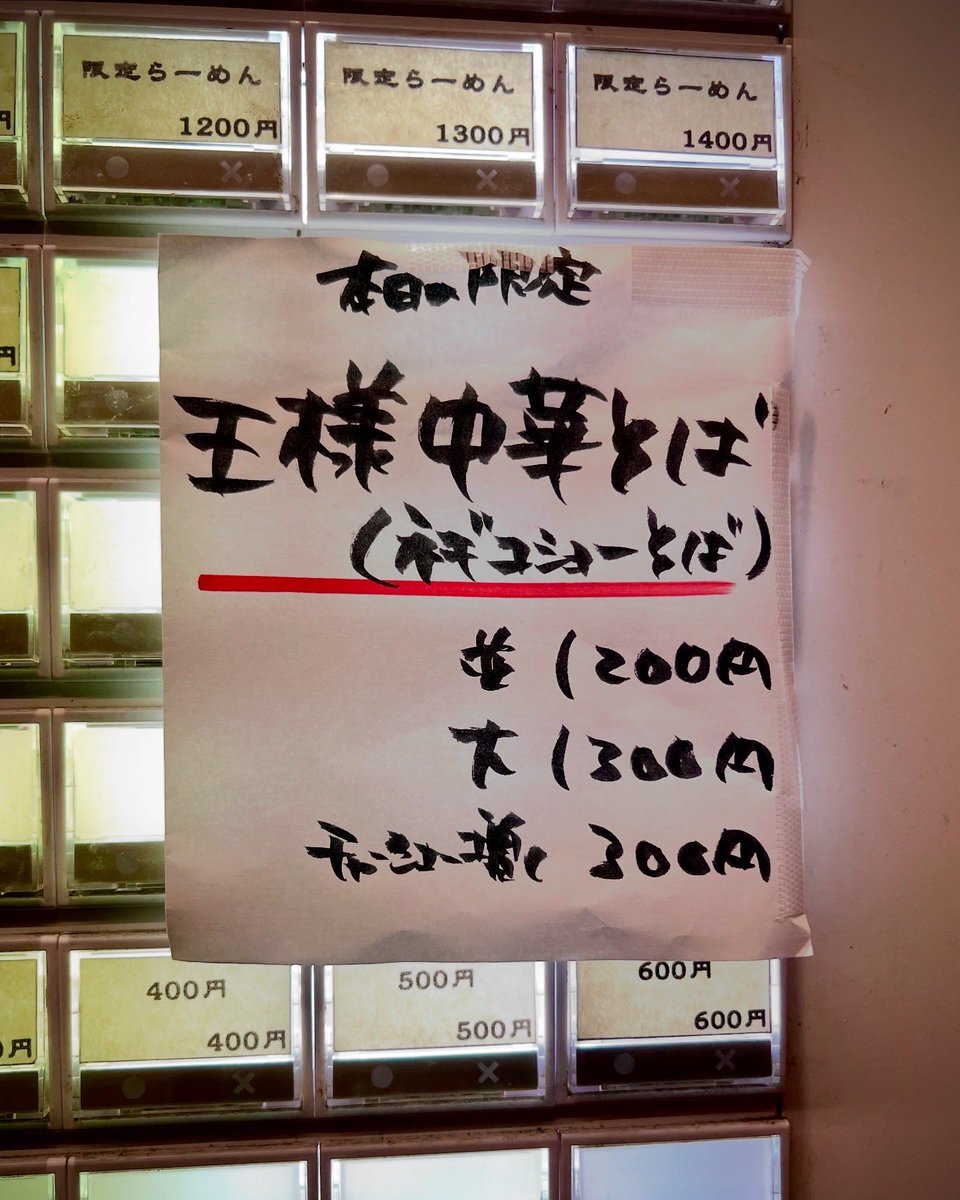 限定らーめん
1200円
限定らーめん
1300円
限定らーめん
1400円
本日の限定
王様中華そば
(ネギコショーそば)
並 1200円
大 1300円
チャーシュー増し 300円
円
円
400円
400円
500円
500円
600円
600円
円